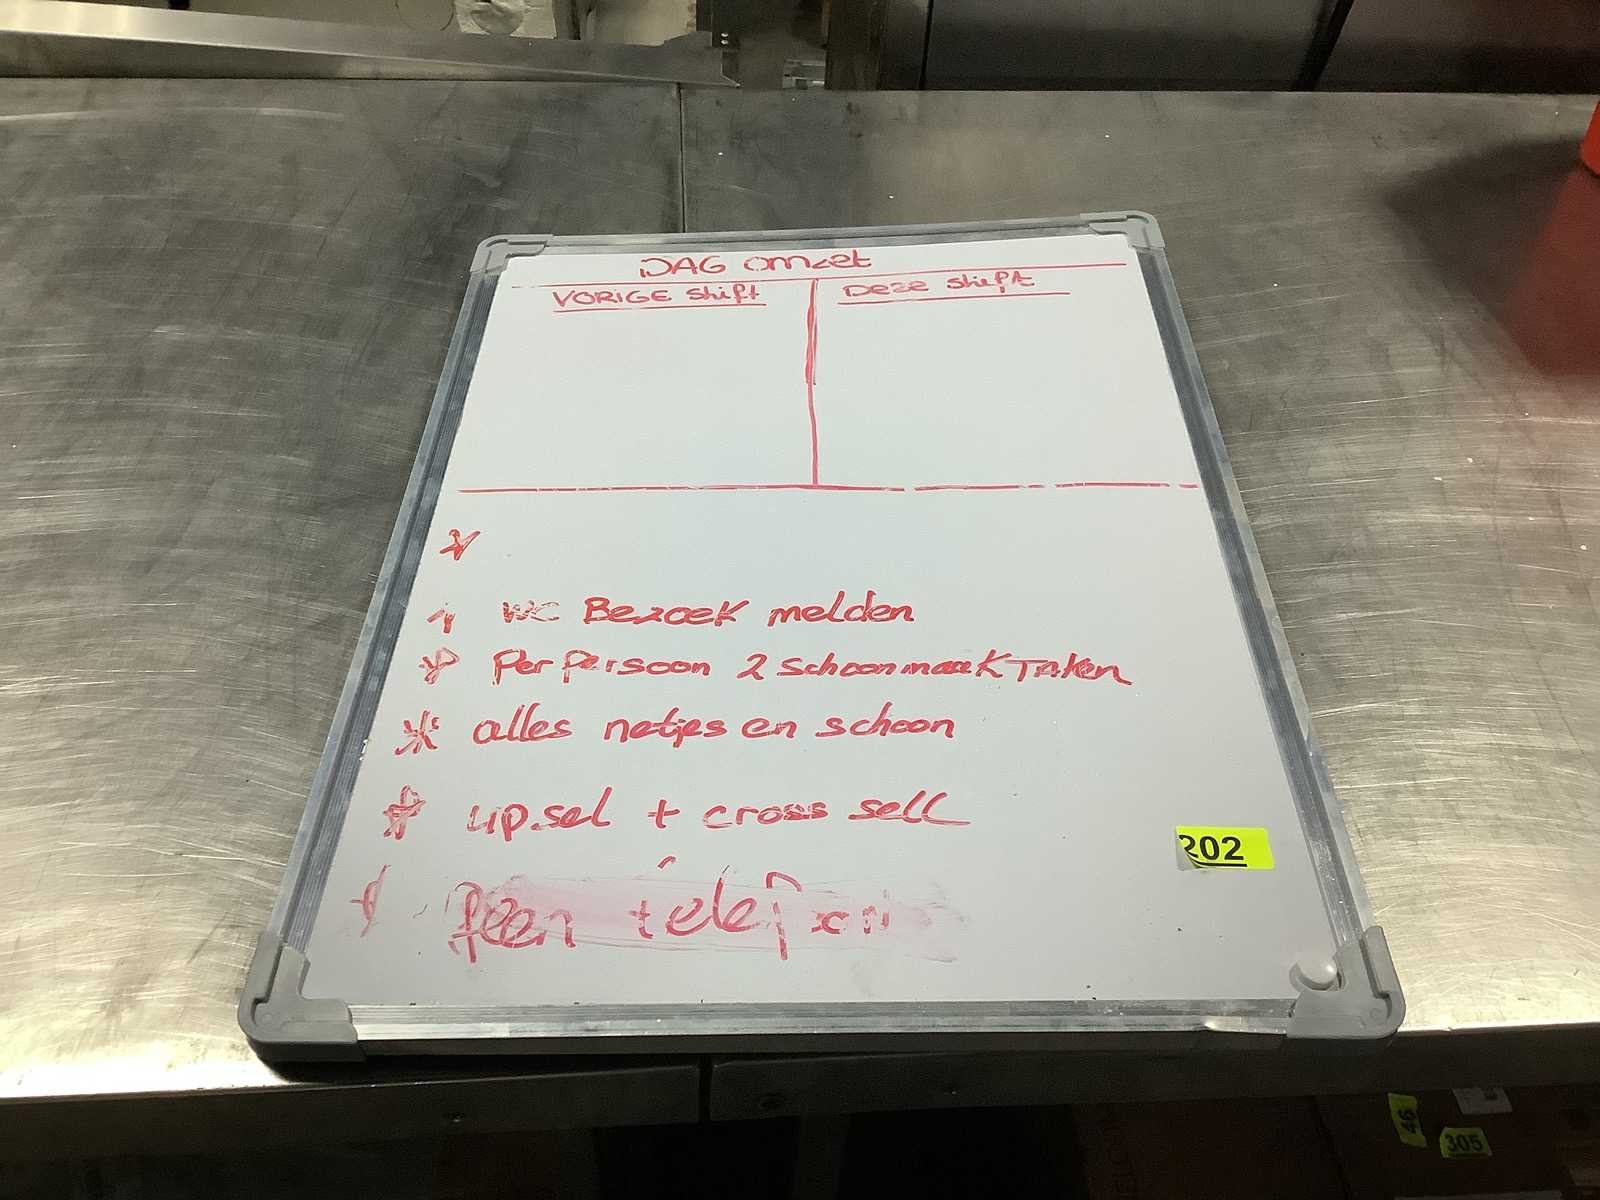 DAG omzet
VORIGE shift
Deze shift
*
* WC Bezoek melden
* Per Persoon 2 schoonmaak Taken
* alles netjes en schoon
* upsel + cross sell
* geen telefoon
202
46
305